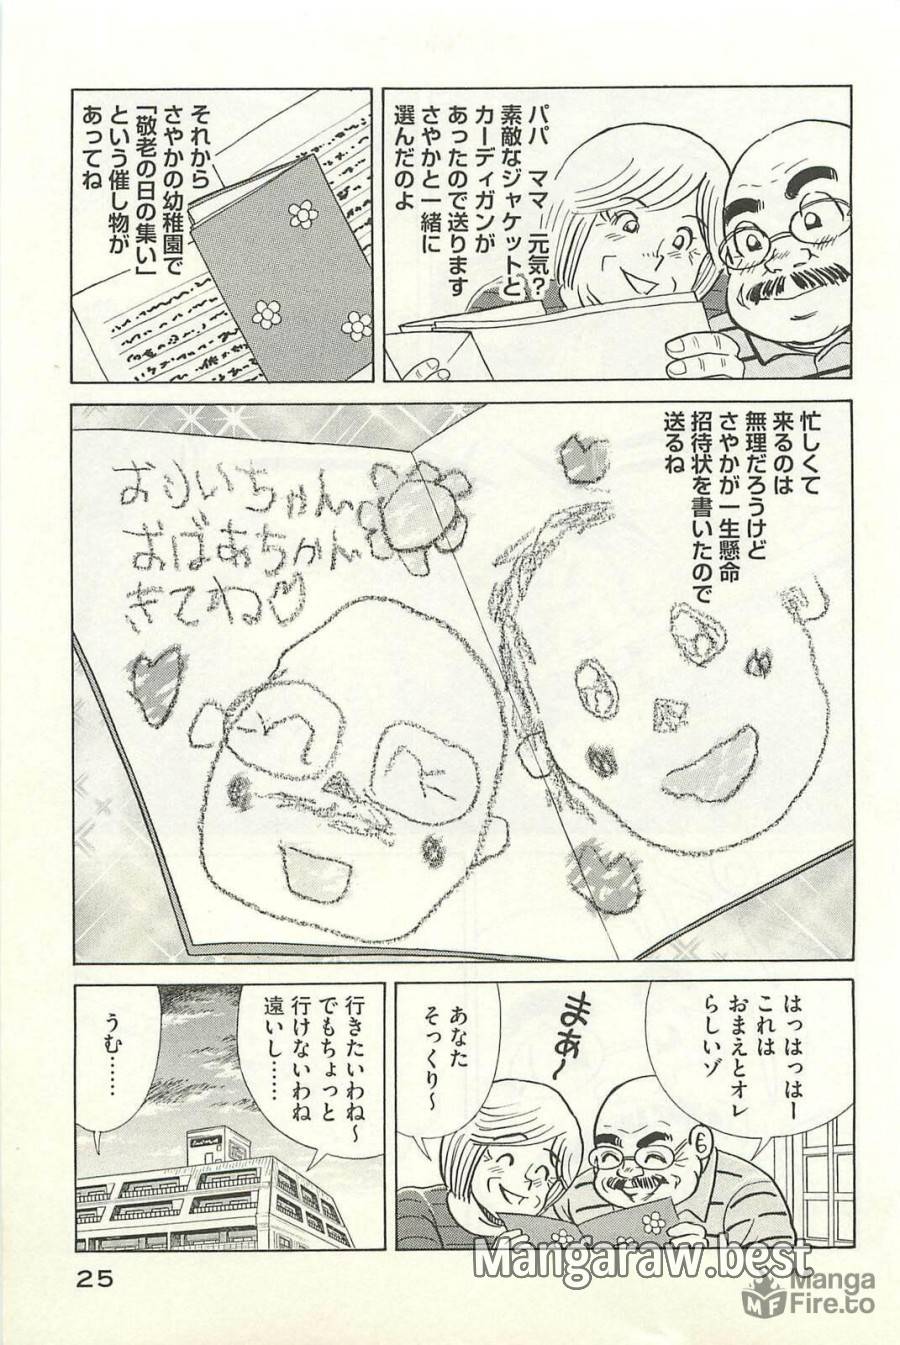 パパ　ママ　元気？
素敵なジャケットと
カーディガンが
あったので送ります
さやかと一緒に
選んだのよ
それから
さやかの幼稚園で
「敬老の日の集い」
という催し物が
あってね
忙しくて
来るのは
無理だろうけど
さやかが一生懸命
招待状を書いたので
送るね
おじいちゃん
おばあちゃん
きてね♡
はっはっはー
これは
おまえとオレ
らしいゾ
まあ〜
あなた
そっくり〜
行きたいわね〜
でもちょっと
行けないわね
遠いし……
うむ……
25
Mangaraw.best
MF
Manga
Fire.to